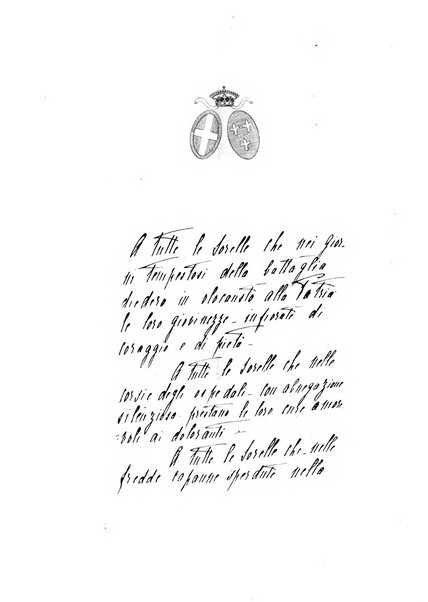 A tutte le sorelle che nei gior-
ni tempestosi della battaglia
diedero in olocausto alla Patria
le loro giovinezze - infiorate di
coraggio e di pietà -
A tutte le Sorelle che nelle
corsie degli ospedali - con abnegazione
silenziosa prestano le loro cure amor-
-voli ai doloranti -
A tutte le Sorelle che - nelle
fredde capanne sperdute nella